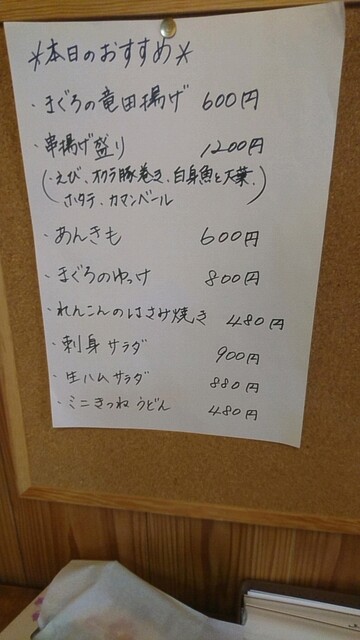 *本日のおすすめ*
・まぐろの竜田揚げ 600円
・串揚げ盛り 1200円
(・えび、オクラ豚巻き、白身魚と大葉、
ホタテ、カマンベール)
・あんきも 600円
・まぐろのゆっけ 800円
・れんこんのはさみ焼き 480円
・刺身サラダ 900円
・生ハムサラダ 880円
・ミニきつねうどん 480円